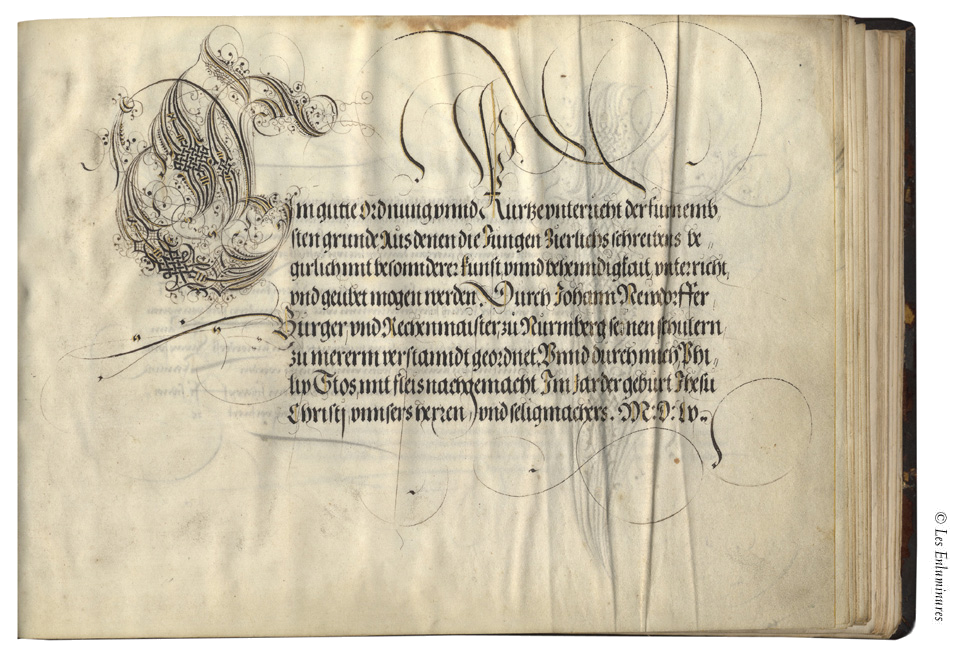 Ein gutte Ordnung vnnd Kurtze vnterricht der furnemb
sten grunde Aus denen die Jungen Zierlichs schreibens be„
girlich mit besonnderer kunst vnnd behenndigkait, vnterricht,
vnd geubet mogen werden. Durch Johann Newdorffer
Burger vnd Rechenmaister zu Nurmberg seinen schulern
zu mererm verstanndt geordnet. Vnnd durch mich Phi„
lip Stos mit fleis nachgemacht Im Jar der geburt Jhesu
Christj vnnsers herren / vnd seligmachers. M: D: Lv.
© Les Enluminures